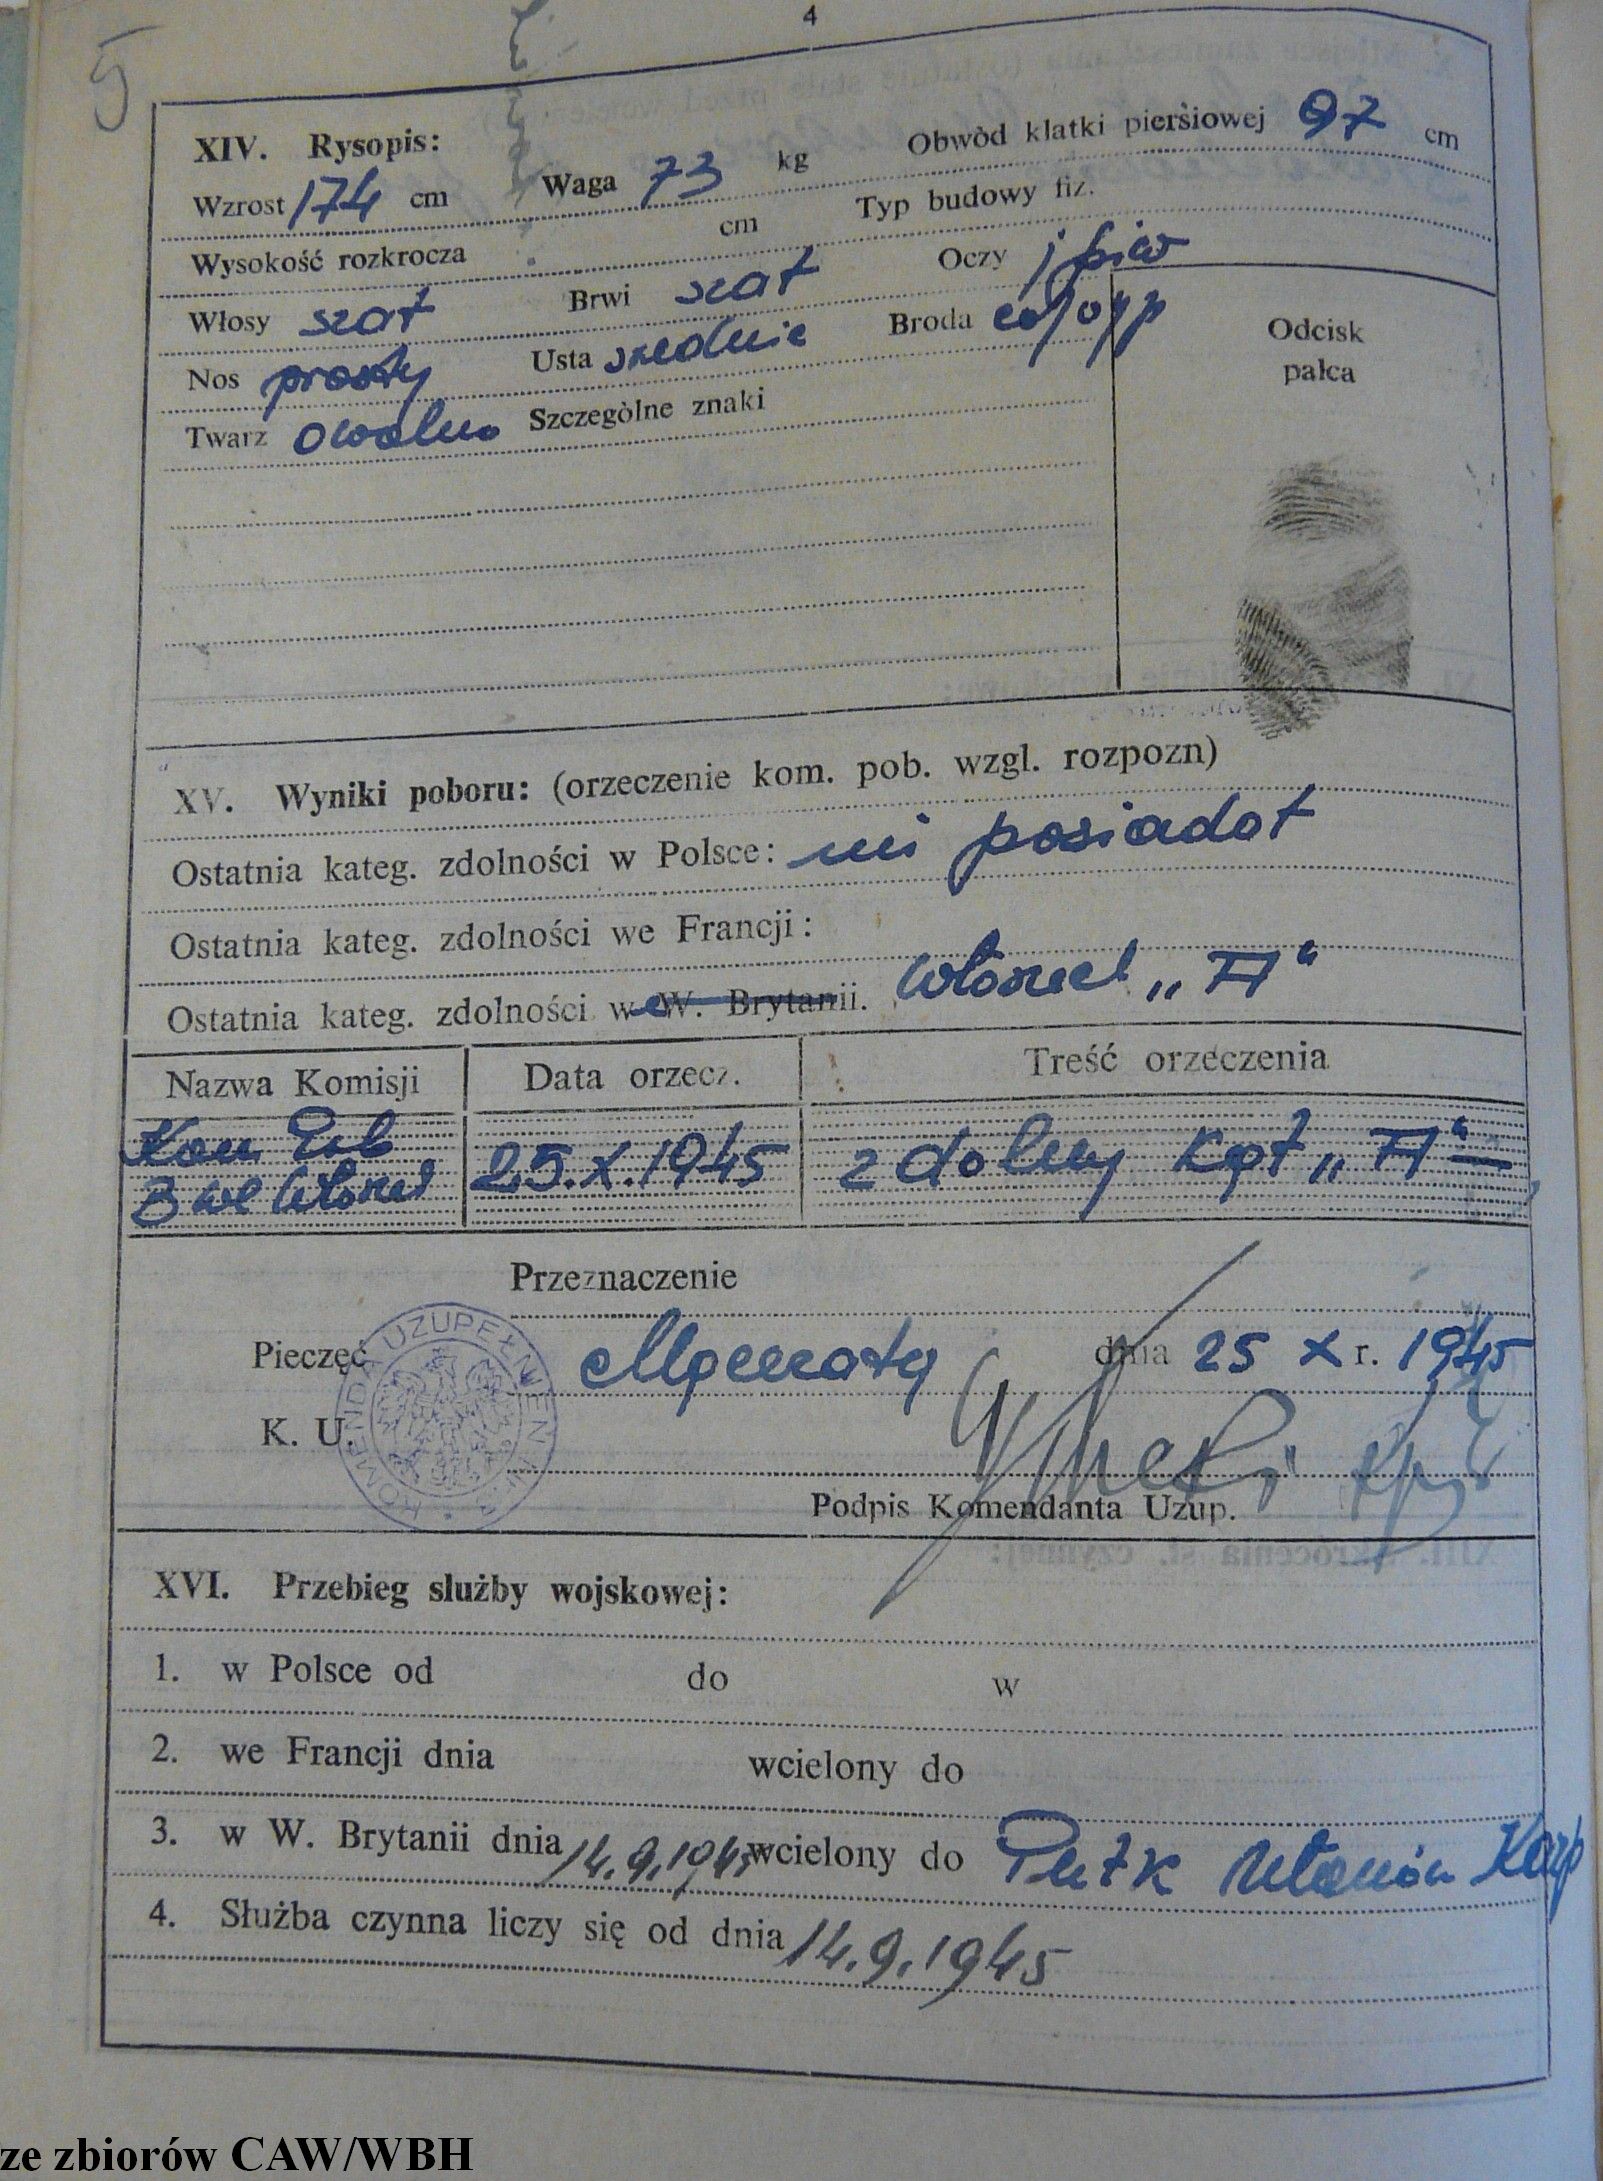 4
5
XIV. Rysopis:
Wzrost 174 cm Waga 73 kg Obwòd klatki piersìowej 97 cm
Wysokość rozkrocza cm Typ budowy fiz.
Włosy szat Brwi szat Oczy j piw
Nos prosty Usta średnie Broda
Twarz owalna Szczegòlne znaki
Odcisk
palca
XV. Wyniki poboru: (orzeczenie kom. pob. wzgl. rozpozn)
Ostatnia kateg. zdolności w Polsce: ni posiadał
Ostatnia kateg. zdolności we Francji:
Ostatnia kateg. zdolności we W. Brytanii. Włoszech „A"
Nazwa Komisji Data orzecz. Treść orzeczenia
Kom
B we Włoszech 25.X.1945 zdolny kat „A"
Przeznaczenie
Pieczęć Macerata dnia 25 X r. 1945
K. U.
KOMENDA UZUPEŁNIEŃ
Podpis Komendanta Uzup.
XVI. Przebieg służby wojskowej:
1. w Polsce od do w
2. we Francji dnia wcielony do
3. w W. Brytanii dnia 14.9.1945 wcielony do Pułk Ułanów Karp
4. Służba czynna liczy się od dnia 14.9.1945
ze zbiorów CAW/WBH